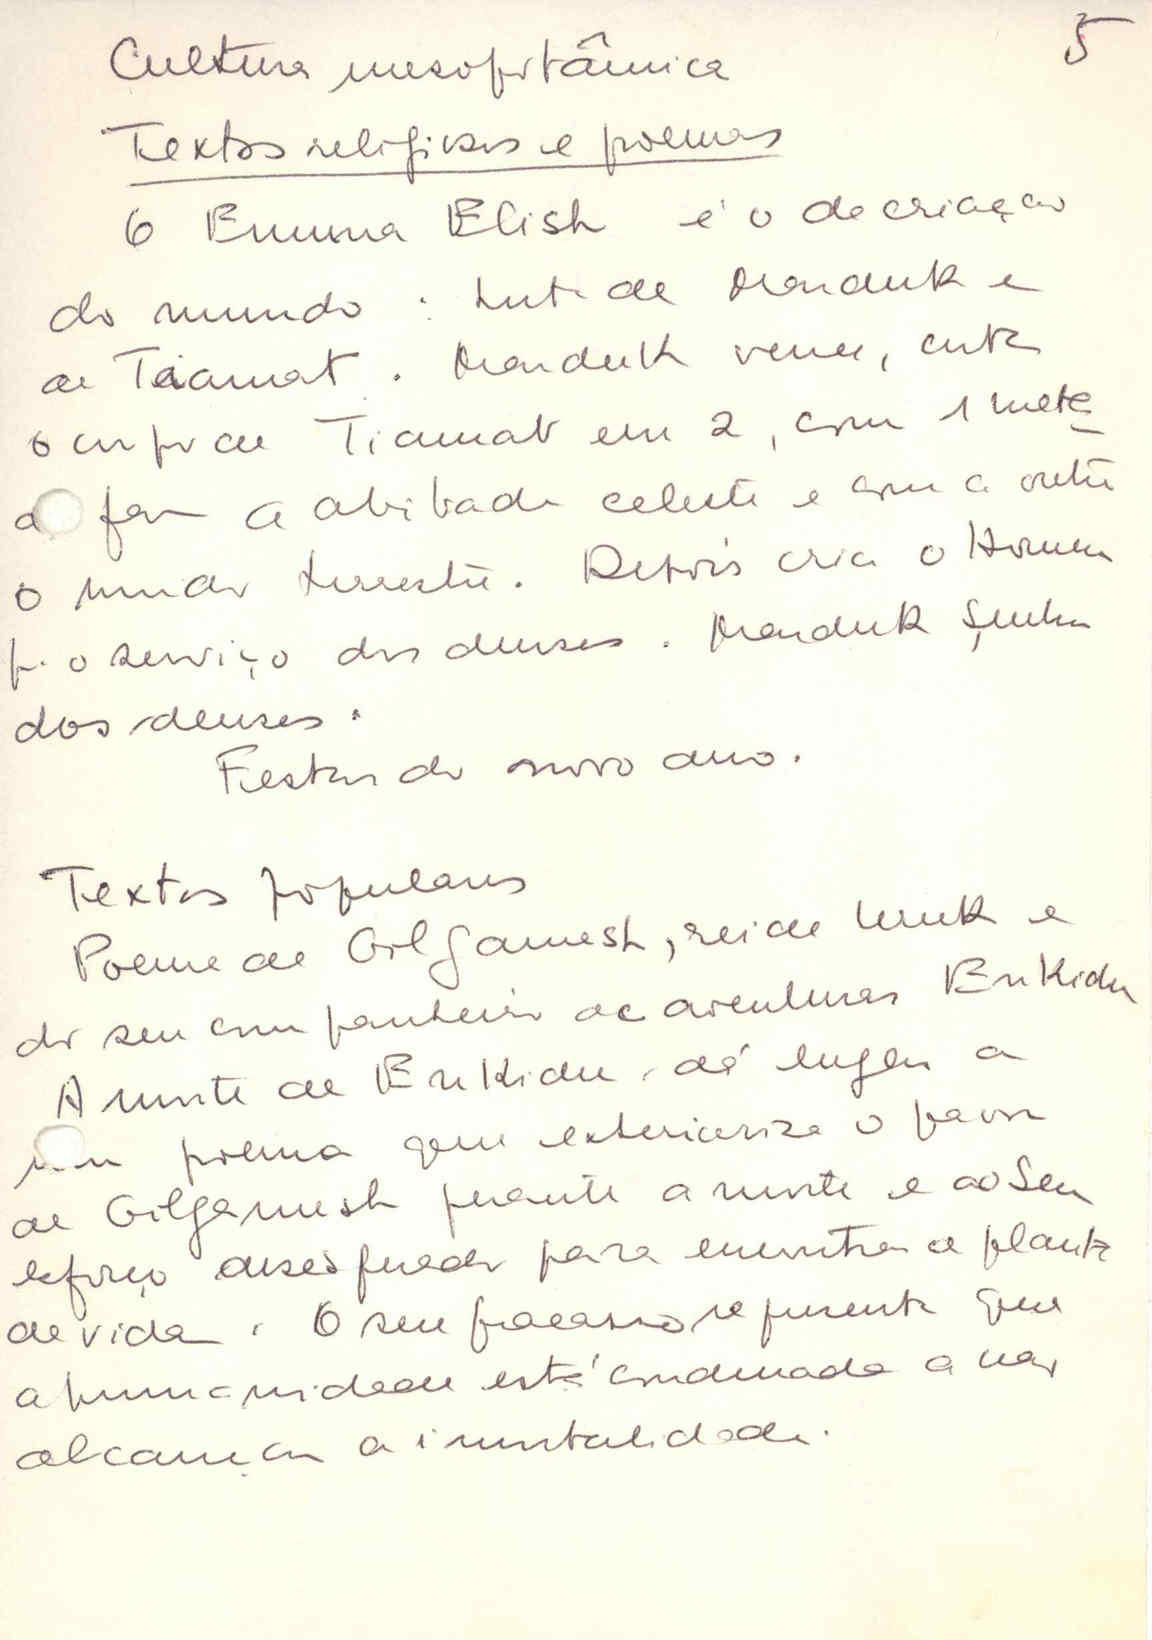 5
Cultura mesopotâmica
Textos religiosos e poemas
O Enuma Elish é o da criação
do mundo : luta de Marduk e
de Tiamat. Marduk vence, corta
o corpo de Tiamat em 2, com 1 meta
de faz a abóbada celeste e com a outra
o mundo terrestre. Depois cria o Homem
p. o serviço dos deuses. Marduk Senhor
dos deuses.
Festas do novo ano.
Textos populares
Poema de Gilgamesh, rei de Uruk e
do seu companheiro de aventuras Enkidu
A morte de Enkidu dá lugar a
um poema que exterioriza o pavor
de Gilgamesh perante a morte e ao seu
esforço desesperado para encontrar a planta
de vida. O seu fracasso representa que
a humanidade está condenada a não
alcançar a imortalidade.